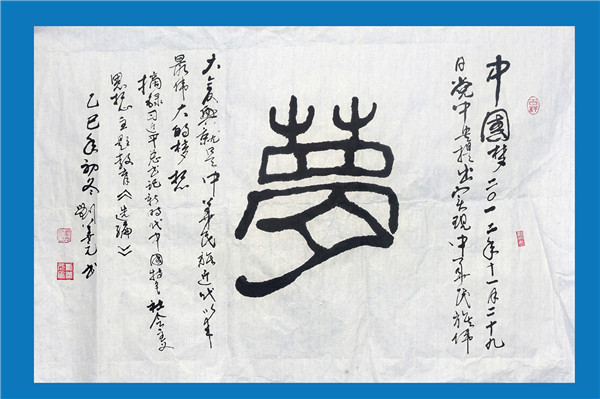 中國梦二〇一二年十一月二十九
日党中央提出实现中华民族伟
夢
大复興就是中华民族近代以来
最伟大的梦想
摘録习近平总书记新时代中國特色社会主义
思想主题教育《选编》
乙巳年初冬 劉元书